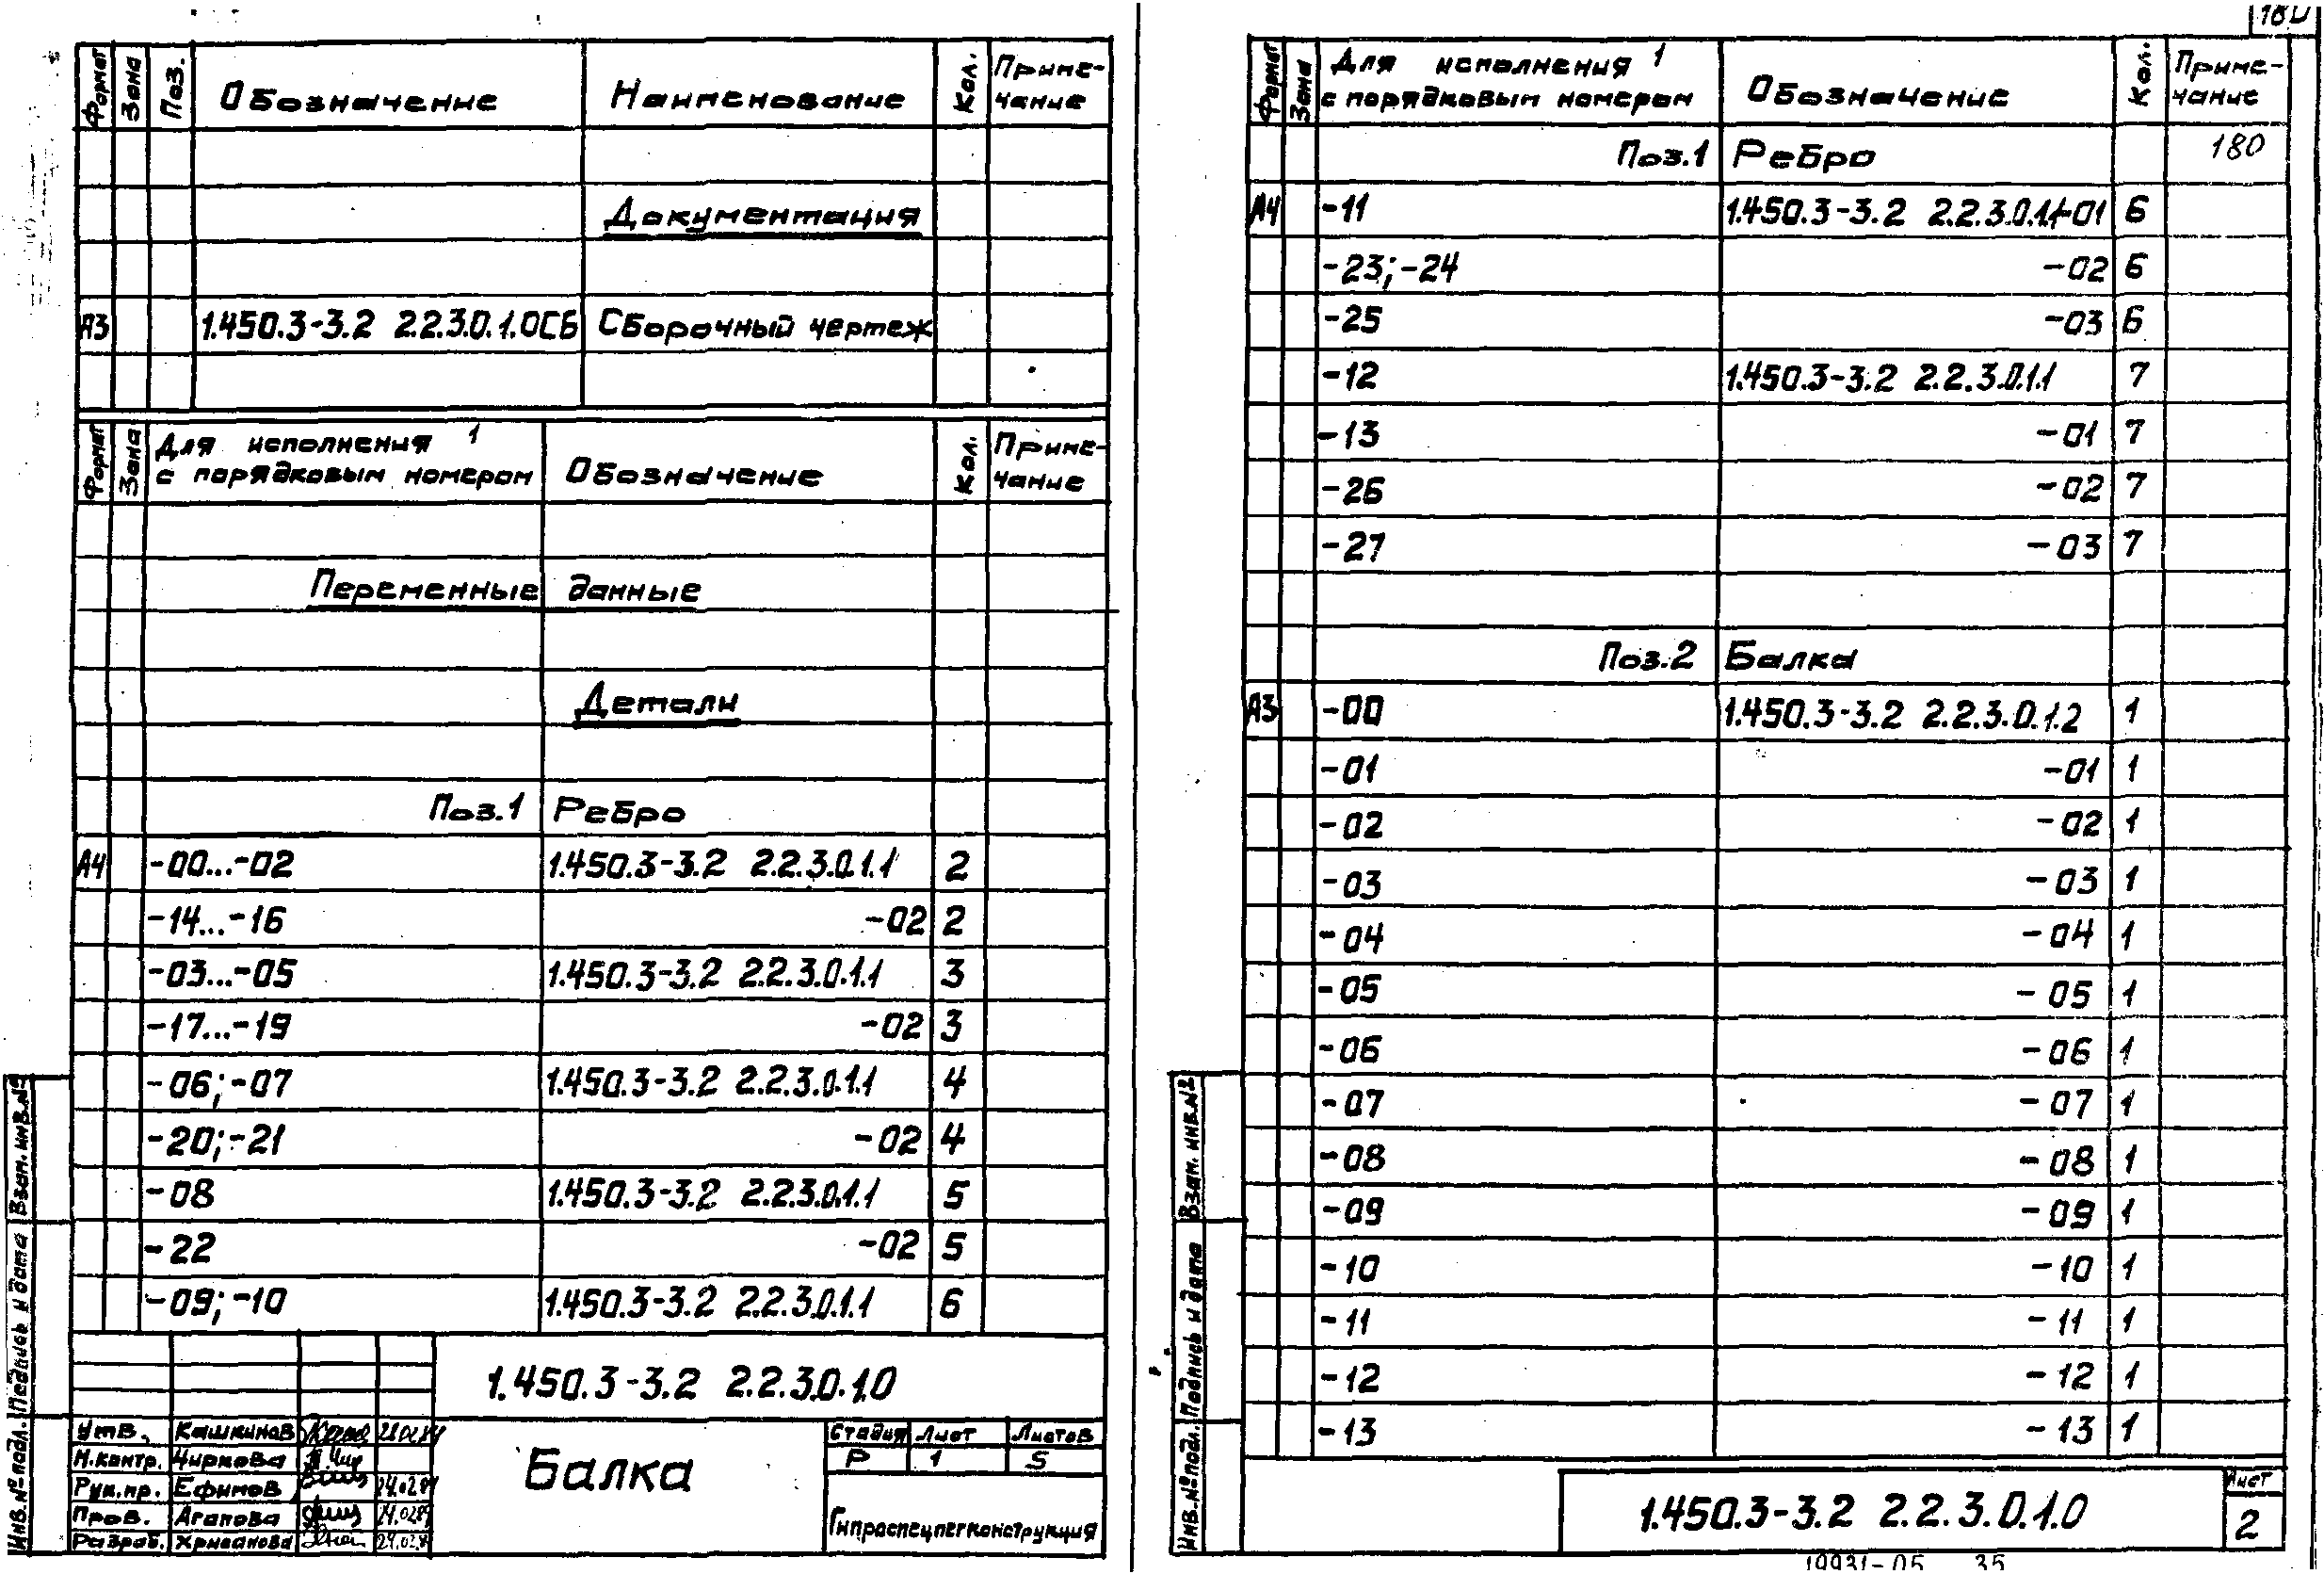 Формат Зона Поз. Обозначение Наименование Кол. Приме-
чание
Документация
А3 1.450.3-3.2 2.2.3.0.1.0СБ Сборочный чертеж
Формат Зона Для исполнения 1
с порядковым номером Обозначение Кол. Приме-
чание
Переменные данные
Детали
Поз.1 Ребро
А4 -00...-02 1.450.3-3.2 2.2.3.0.1.1 2
-14...-16 -02 2
-03...-05 1.450.3-3.2 2.2.3.0.1.1 3
-17...-19 -02 3
-06;-07 1.450.3-3.2 2.2.3.0.1.1 4
-20;-21 -02 4
-08 1.450.3-3.2 2.2.3.0.1.1 5
-22 -02 5
-09;-10 1.450.3-3.2 2.2.3.0.1.1 6
1.450.3-3.2 2.2.3.0.1.0
Утв. Кашкинов
Н.контр. Чиркова
Рук.пр. Ефимов
Пров. Агапова
Разраб.
Балка
Стадия Лист Листов
Р 1 5
Гипроспецлегконструкция
Инв.№подл. Подпись и дата Взам.инв.№
180
Формат Зона Для исполнения 1
с порядковым номером Обозначение Кол. Приме-
чание
Поз.1 Ребро 180
А4 -11 1.450.3-3.2 2.2.3.0.1.1-01 6
-23;-24 -02 6
-25 -03 6
-12 1.450.3-3.2 2.2.3.0.1.1 7
-13 -01 7
-26 -02 7
-27 -03 7
Поз.2 Балка
А3 -00 1.450.3-3.2 2.2.3.0.1.2 1
-01 -01 1
-02 -02 1
-03 -03 1
-04 -04 1
-05 -05 1
-06 -06 1
-07 -07 1
-08 -08 1
-09 -09 1
-10 -10 1
-11 -11 1
-12 -12 1
-13 -13 1
1.450.3-3.2 2.2.3.0.1.0
Лист
2
Инв.№подл. Подпись и дата Взам.инв.№
19931-05 35